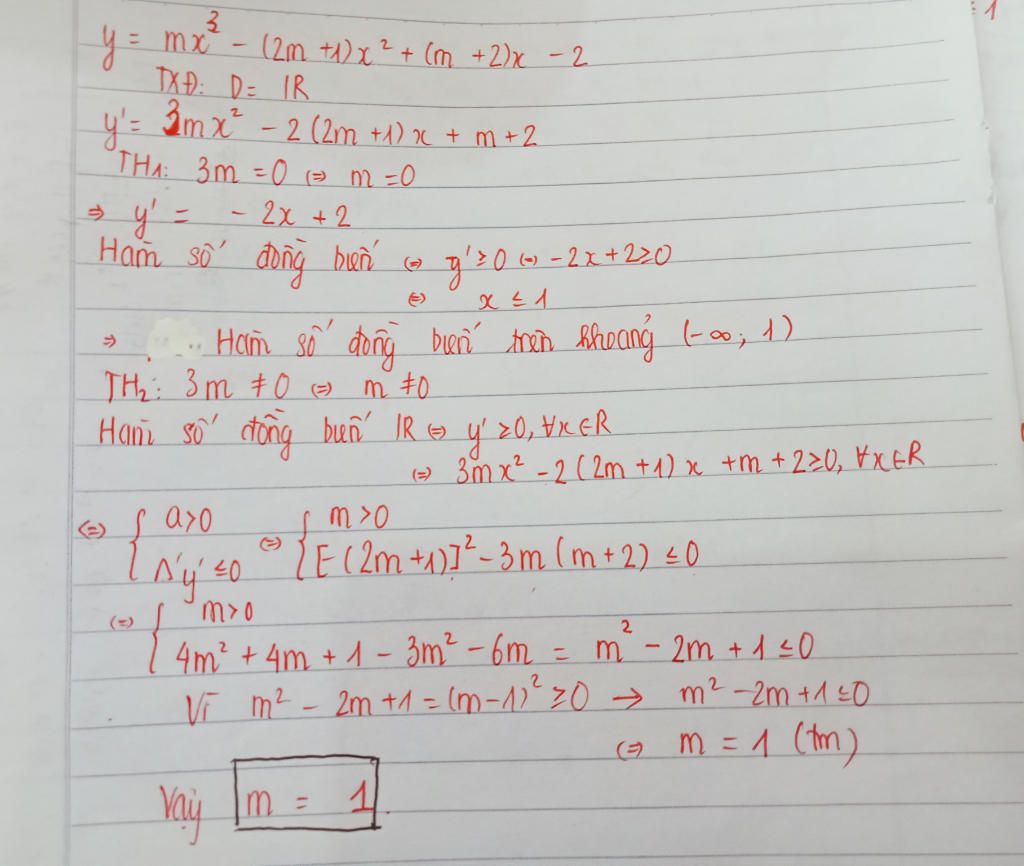 : 1
y = mx³ - (2m+1)x² + (m+2)x - 2
TXĐ: D = ℝ
y' = 3mx² - 2(2m+1)x + m+2
TH1: 3m = 0 ⇔ m = 0
⇒ y' = - 2x + 2
Hàm số đồng biến ⇔ y' ≥ 0 ⇔ -2x+2≥0
⇔ x ≤ 1
⇒ Hàm số đồng biến trên khoảng (-∞; 1)
TH2: 3m ≠ 0 ⇔ m ≠ 0
Hàm số đồng biến ℝ ⇔ y' ≥ 0, ∀x∈R
⇔ 3mx² - 2(2m+1)x + m + 2 ≥ 0, ∀x∈R
⇔ { a>0 ⇔ { m>0
Δ'y' ≤ 0 [-(2m+1)]² - 3m(m+2) ≤ 0
⇔ { m>0
4m² + 4m + 1 - 3m² - 6m = m² - 2m + 1 ≤ 0
Vì m² - 2m + 1 = (m-1)² ≥ 0 → m² - 2m + 1 ≤ 0
⇔ m = 1 (tm)
Vậy m = 1.